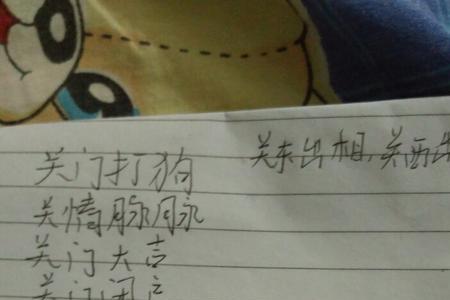 关门打狗 关东出相,关西出
关情脉脉
关门大吉
关门闭户